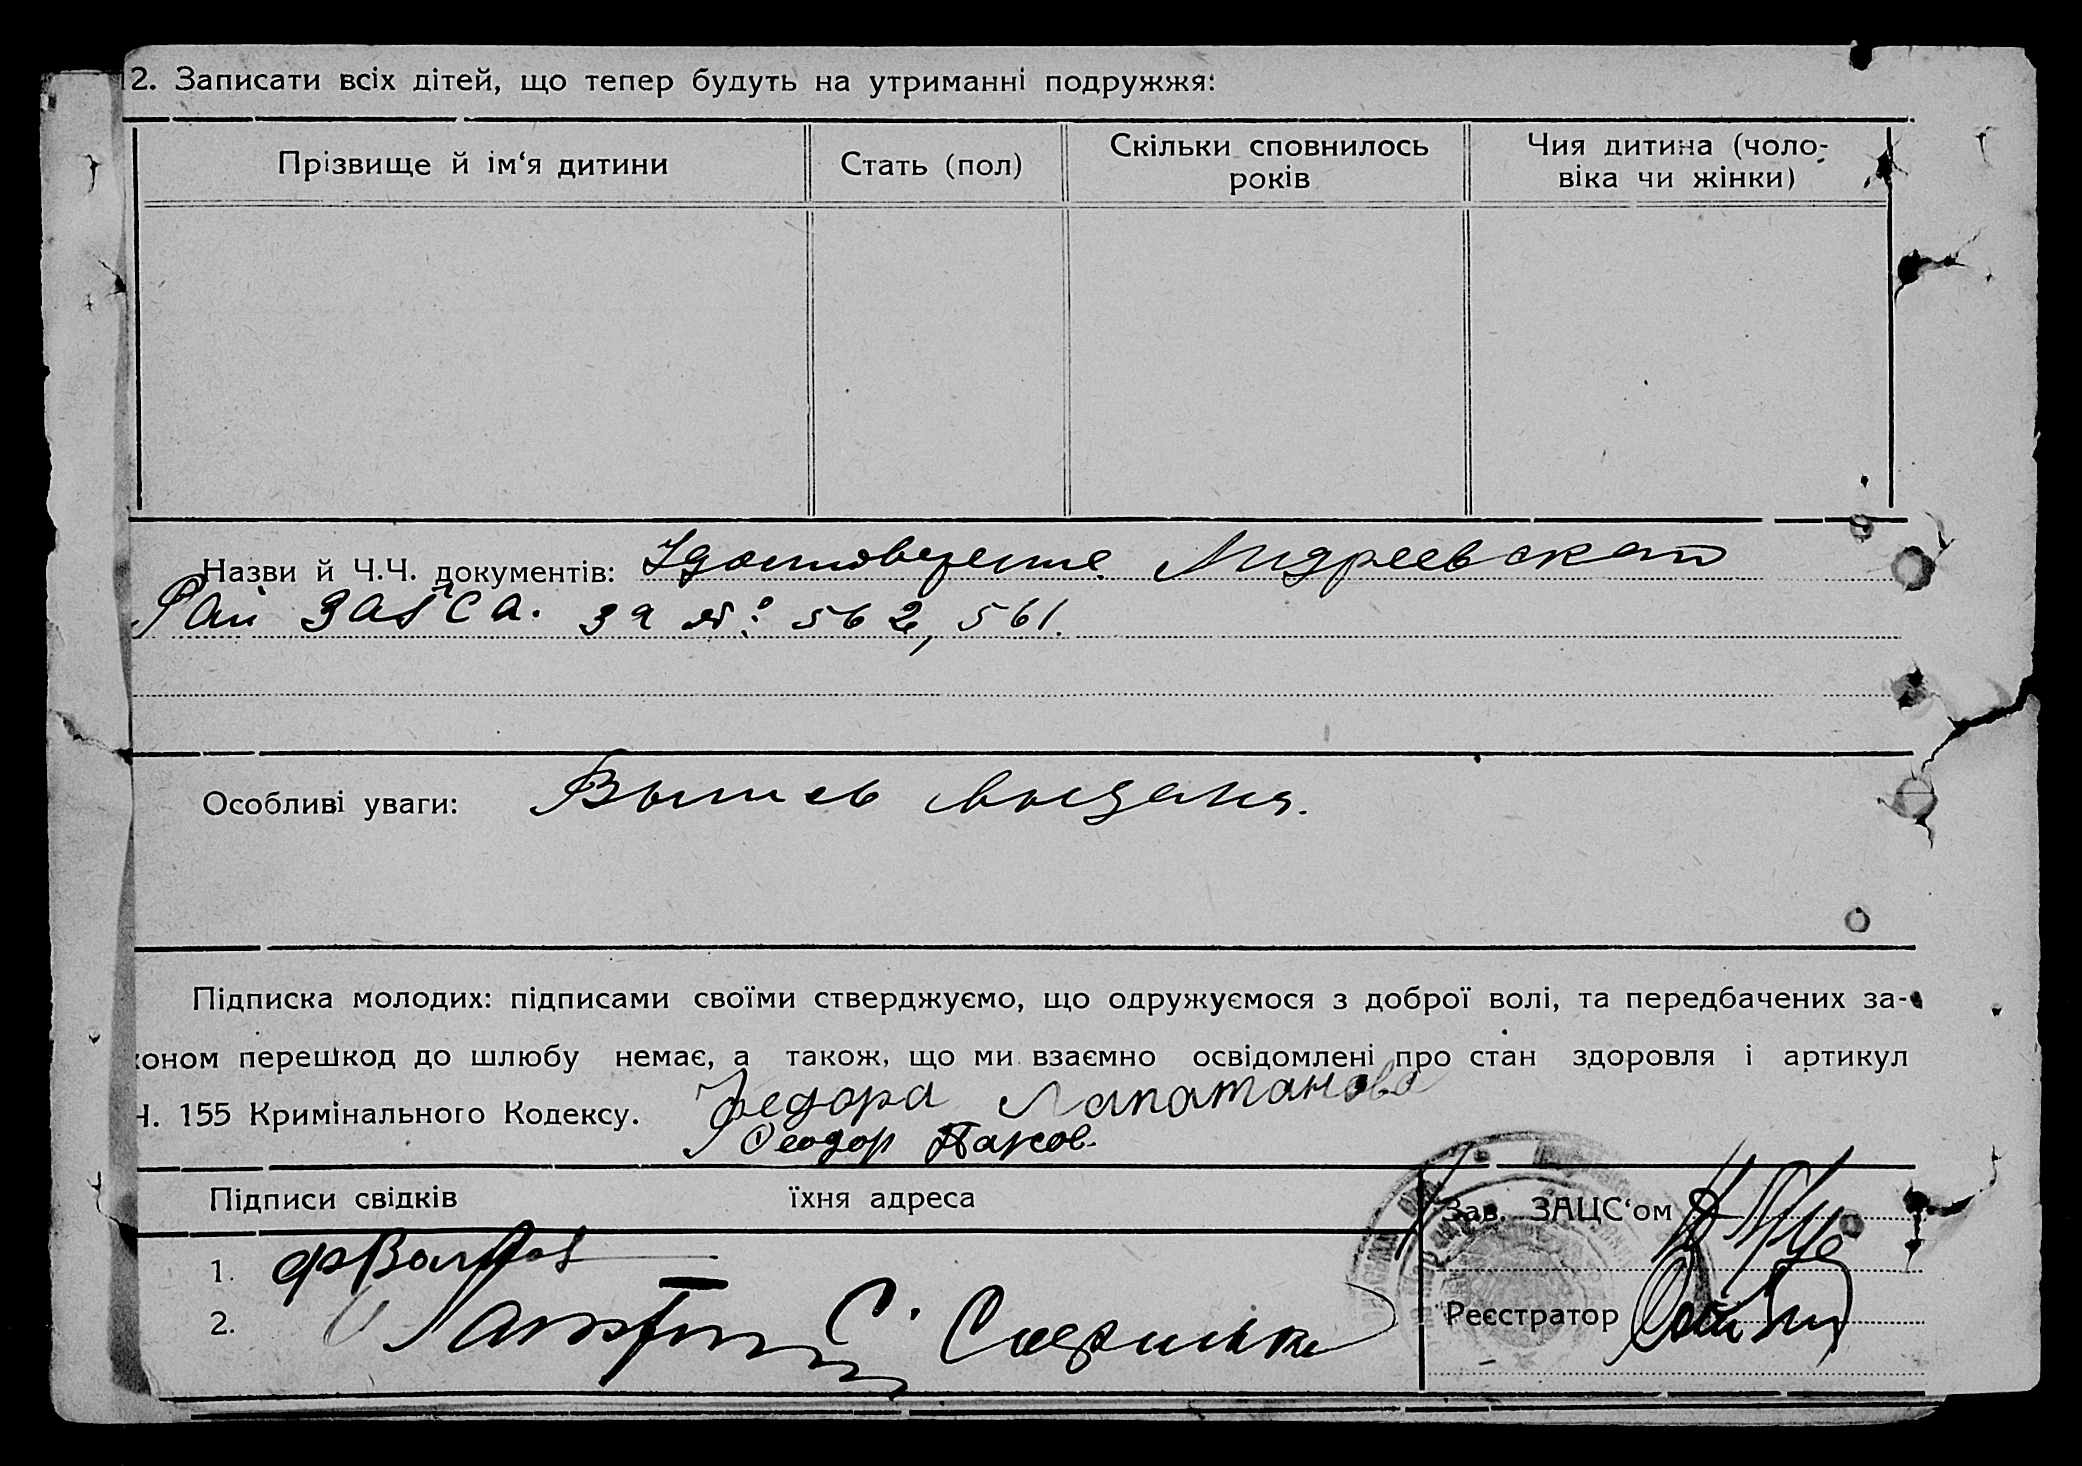 2. Записати всіх дітей, що тепер будуть на утриманні подружжя:
Прізвище й ім‘я дитини
Стать (пол)
Скільки сповнилось
років
Чия дитина (чоло-
віка чи жінки)
Назви й Ч.Ч. документів: Удостоверение Андреевского
Рай ЗАГСА. за №: 562, 561.
Особливі уваги: Выпись выдана.
Підписка молодих: підписами своїми стверджуємо, що одружуємося з доброї волі, та передбачених за-
коном перешкод до шлюбу немає, а також, що ми взаємно освідомлені про стан здоровля і артикул
Ч. 155 Кримінального Кодексу. Федора Лапатанова
Феодор Панов.
Підписи свідків
їхня адреса
Зав. ЗАЦС‘ом
1.
2.
Реєстратор